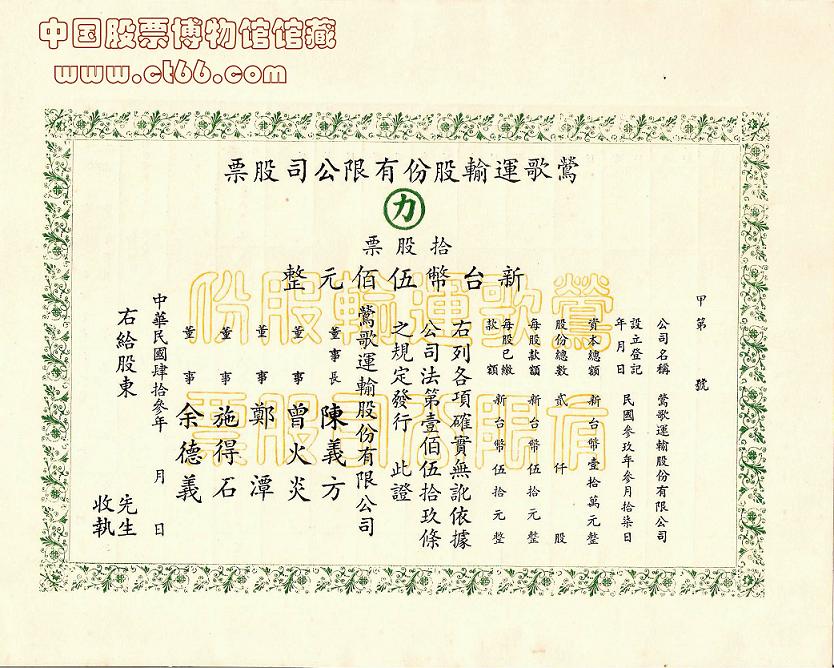 中国股票博物馆馆藏
www.ct66.com
鶯歌運輸股份有限公司股票
力
拾股票
新台幣伍佰元整
鶯歌運輸股份
有限公司股票
甲第　號
公司名稱　鶯歌運輸股份有限公司
設立登記年月日　民國參玖年參月拾柒日
資本總額　新台幣壹拾萬元整
股份總數　貳仟股
每股款額　新台幣伍拾元整
每股已繳款額　新台幣伍拾元整
右列各項確實無訛依據
公司法第壹佰伍拾玖條
之規定發行　此證
鶯歌運輸股份有限公司
董事長　陳義方
董事　曾火炎
董事　鄭潭
董事　施得石
董事　余德義
中華民國肆拾參年　月　日
右給股東　先生
收執